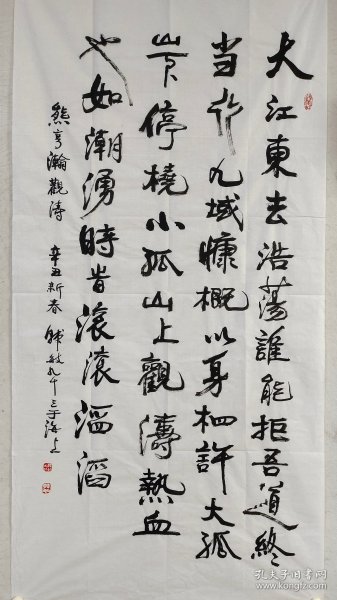 大江東去浩荡誰能拒吾道終
当行九域慷概以身相許大孤
山下停橈小孤山上觀濤熱血
也如潮湧時皆滾滾滔滔
熊亨瀚觀濤 辛丑新春 敏九十三于海上
孔夫子旧书网